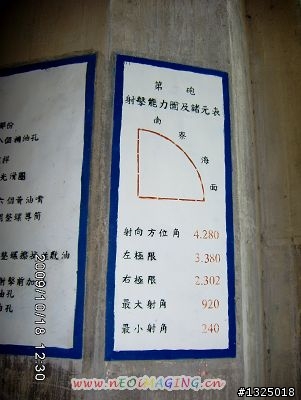 第　砲
射擊能力圖及諸元表
南
寮
海
面
射向方位角 4.280
左極限 3.380
右極限 2.302
最大射角 920
最小射角 240
個補油孔
六個黃油嘴
調整螺
射擊前加
油孔
2009/10/18 12:30
www.nEOiMAGiNG.cn
#1325018